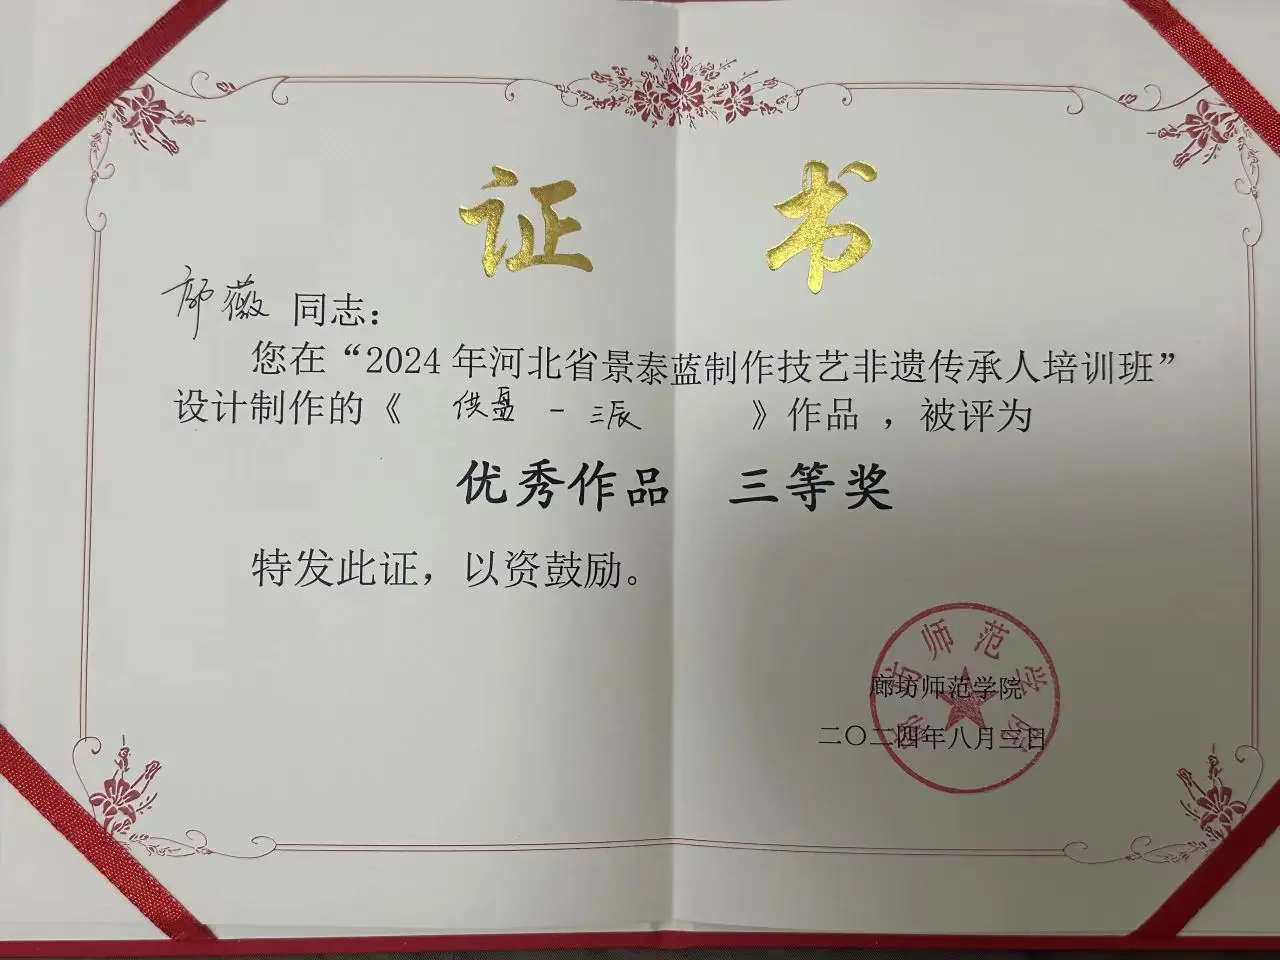 证 书
薇 同志：
您在“2024年河北省景泰蓝制作技艺非遗传承人培训班”
设计制作的《 供盘 - 三辰 》作品 ，被评为
优秀作品 三等奖
特发此证，以资鼓励。
廊坊师范学院
廊坊师范学院
二〇二四年八月三日